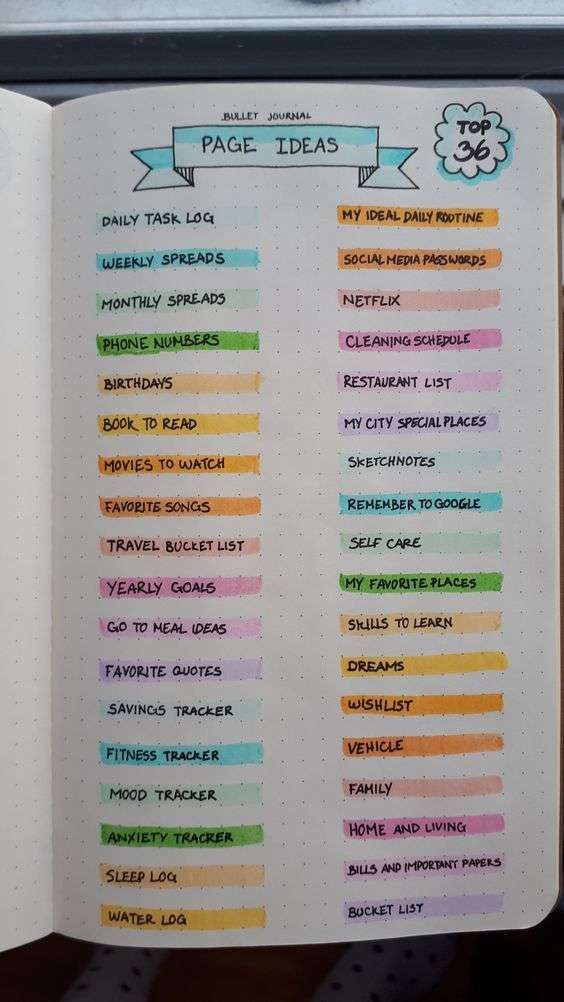 BULLET JOURNAL
PAGE IDEAS
TOP
36
DAILY TASK LOG
WEEKLY SPREADS
MONTHLY SPREADS
PHONE NUMBERS
BIRTHDAYS
BOOK TO READ
MOVIES TO WATCH
FAVORITE SONGS
TRAVEL BUCKET LIST
YEARLY GOALS
GO TO MEAL IDEAS
FAVORITE QUOTES
SAVINGS TRACKER
FITNESS TRACKER
MOOD TRACKER
ANXIETY TRACKER
SLEEP LOG
WATER LOG
MY IDEAL DAILY ROUTINE
SOCIAL MEDIA PASSWORDS
NETFLIX
CLEANING SCHEDULE
RESTAURANT LIST
MY CITY SPECIAL PLACES
SKETCHNOTES
REMEMBER TO GOOGLE
SELF CARE
MY FAVORITE PLACES
SKILLS TO LEARN
DREAMS
WISHLIST
VEHICLE
FAMILY
HOME AND LIVING
BILLS AND IMPORTANT PAPERS
BUCKET LIST